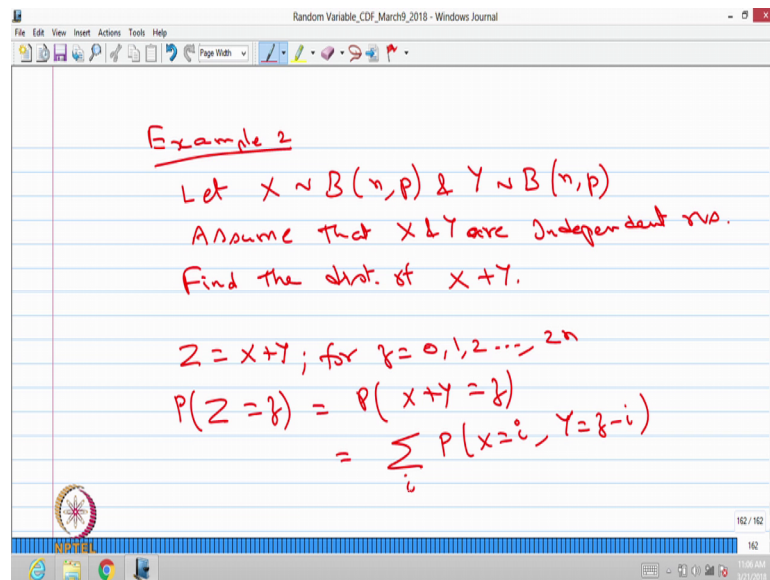 Random Variable_CDF_March9_2018 - Windows Journal
File Edit View Insert Actions Tools Help
Page Width
Example 2
Let X ~ B(n,p) & Y ~ B(n,p)
Assume that X & Y are Independent rvs.
Find the dist. of X+Y.
Z = X+Y ; for z = 0,1,2 ..., 2n
P(Z = z) = P( X+Y = z)
= Σ P(X=i, Y=z-i)
i
NPTEL
162 / 162
162
11:06 AM
3/21/2018